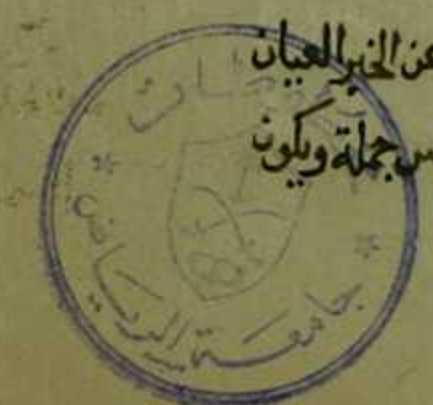 عن الخبر العيان
س جملة ويكون
جامعة الرياض